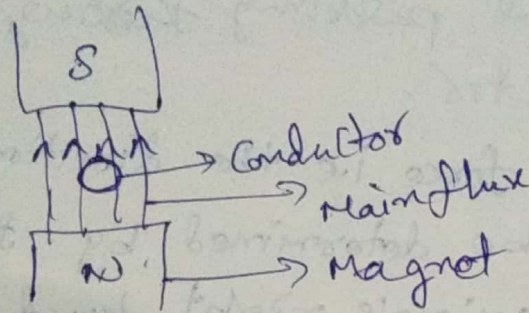 S
Conductor
Main flux
N
Magnet